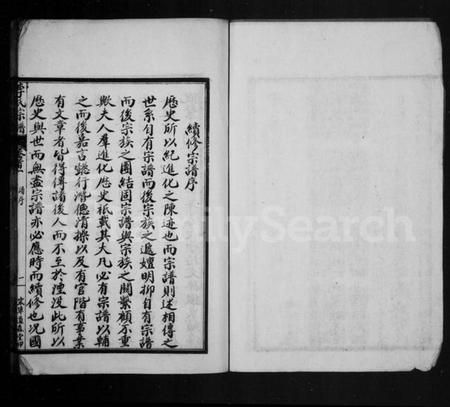 續修宗譜序
歷史所以紀進化之陳迹也而宗譜則述相傳之
世系自有宗譜而後宗族之遞嬗明抑自有宗譜
而後宗族之團結固宗譜與宗族之關繫顧不重
歟夫人羣進化歷史祇載其大凡必有宗譜以輔
之而後嘉言懿行潛德清操以及有官階有事業
有文章者皆得傳諸後人而不至於湮沒此所以
歷史與世而無盡宗譜亦必應時而續修也況國
李氏宗譜
譜序
一
FamilySearch